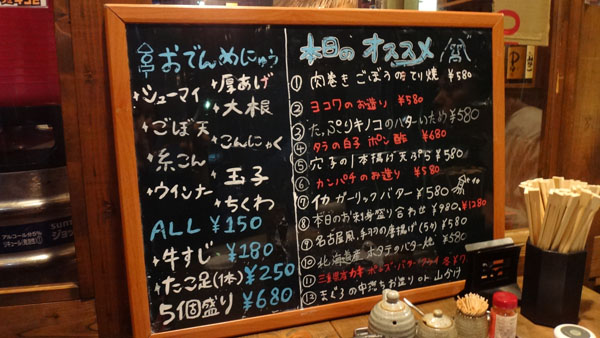 おでんめにゅう
+シューマイ
+厚あげ
+大根
+ごぼ天
+こんにゃく
+糸こん
+玉子
+ウインナー
+ちくわ
ALL ¥150
+牛すじ ¥180
+たこ足(1本) ¥250
5個盛り ¥680
本日のオススメ
① 肉巻きごぼう てり焼 ¥580
② ヨコワのお造り ¥580
③ たっぷりキノコのバターいため ¥580
④ タラの白子 ポン酢 ¥680
⑤ 穴子の1本揚げ天ぷら ¥580
⑥ カンパチのお造り ¥580
⑦ イカ ガーリックバター ¥580
⑧ 本日のお刺身盛り合わせ ¥980, ¥1280
⑨ 名古屋風、手羽の唐揚げ(5ヶ) ¥580
⑩ 北海道産 ホタテバター焼 ¥580
⑪ 三重県産カキ ポンズ・バター・フライ 各¥
⑫ まぐろの中落ちお造り or 山かけ